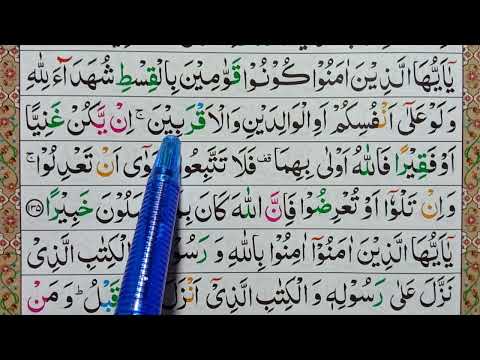 يٰۤاَيُّهَا الَّذِيْنَ اٰمَنُوْا كُوْنُوْا قَوّٰمِيْنَ بِالْقِسْطِ شُهَدَآءَ لِلّٰهِ
وَلَوْ عَلٰۤى اَنْفُسِكُمْ اَوِ الْوَالِدَيْنِ وَالْاَقْرَبِيْنَ ۚ اِنْ يَّكُنْ غَنِيًّا
اَوْ فَقِيْرًا فَاللّٰهُ اَوْلٰى بِهِمَا قف فَلَا تَتَّبِعُوا اَنْ تَعْدِلُوْا ۚ
وَاِنْ تَلْوٗۤا اَوْ تُعْرِضُوْا فَاِنَّ اللّٰهَ كَانَ خَبِيْرًا ﴿۱۳۵﴾
يٰۤاَيُّهَا الَّذِيْنَ اٰمَنُوْۤا اٰمِنُوْا بِاللّٰهِ وَ الْكِتٰبِ الَّذِىْ
نَزَّلَ عَلٰى رَسُوْلِهٖ وَ الْكِتٰبِ الَّذِىْۤ اَنْزَلَ قَبْلُ ؕ وَ مَنْ